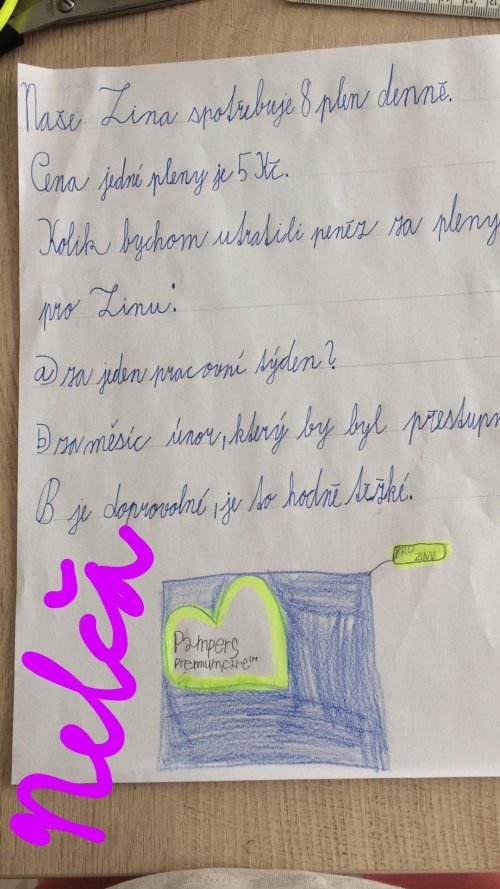 Naše Zina spotřebuje 8 plen denně.
Cena jedné pleny je 5 Kč.
Kolik bychom utratili peněz za pleny
pro Zinu:
a) za jeden pracovní týden?
b) za měsíc únor, který by byl přestupn
B je doprovolné, je to hodně těžké.
PRO
ZINU
Pampers
Premiumcare™
nelča